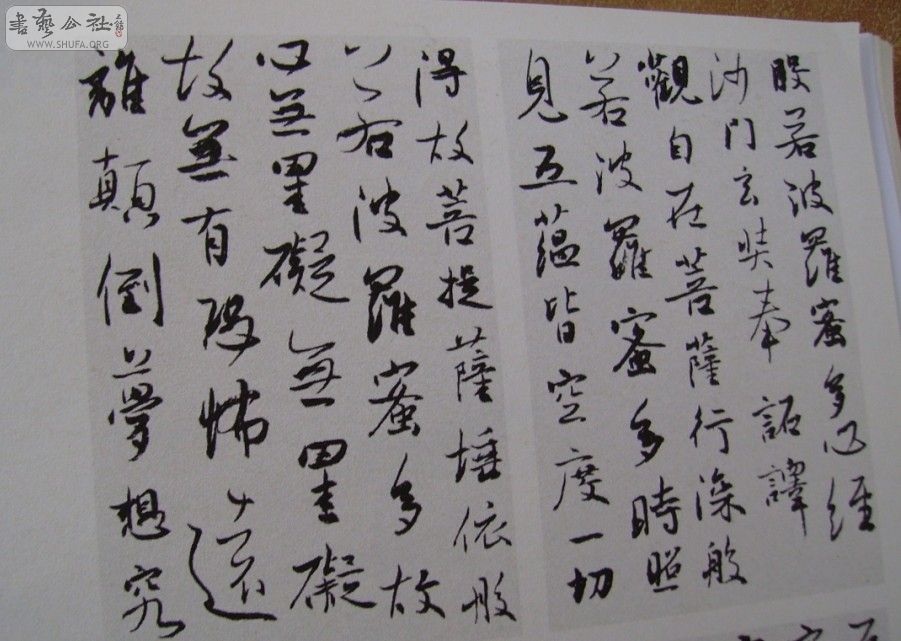 書藝公社
WWW.SHUFA.ORG
般若波羅蜜多心經
沙門玄奘奉詔譯
觀自在菩薩行深般
若波羅蜜多時照
見五蘊皆空度一切
得故菩提薩埵依般
若波羅蜜多故
心無罣礙無罣礙
故無有恐怖遠
離顛倒夢想究